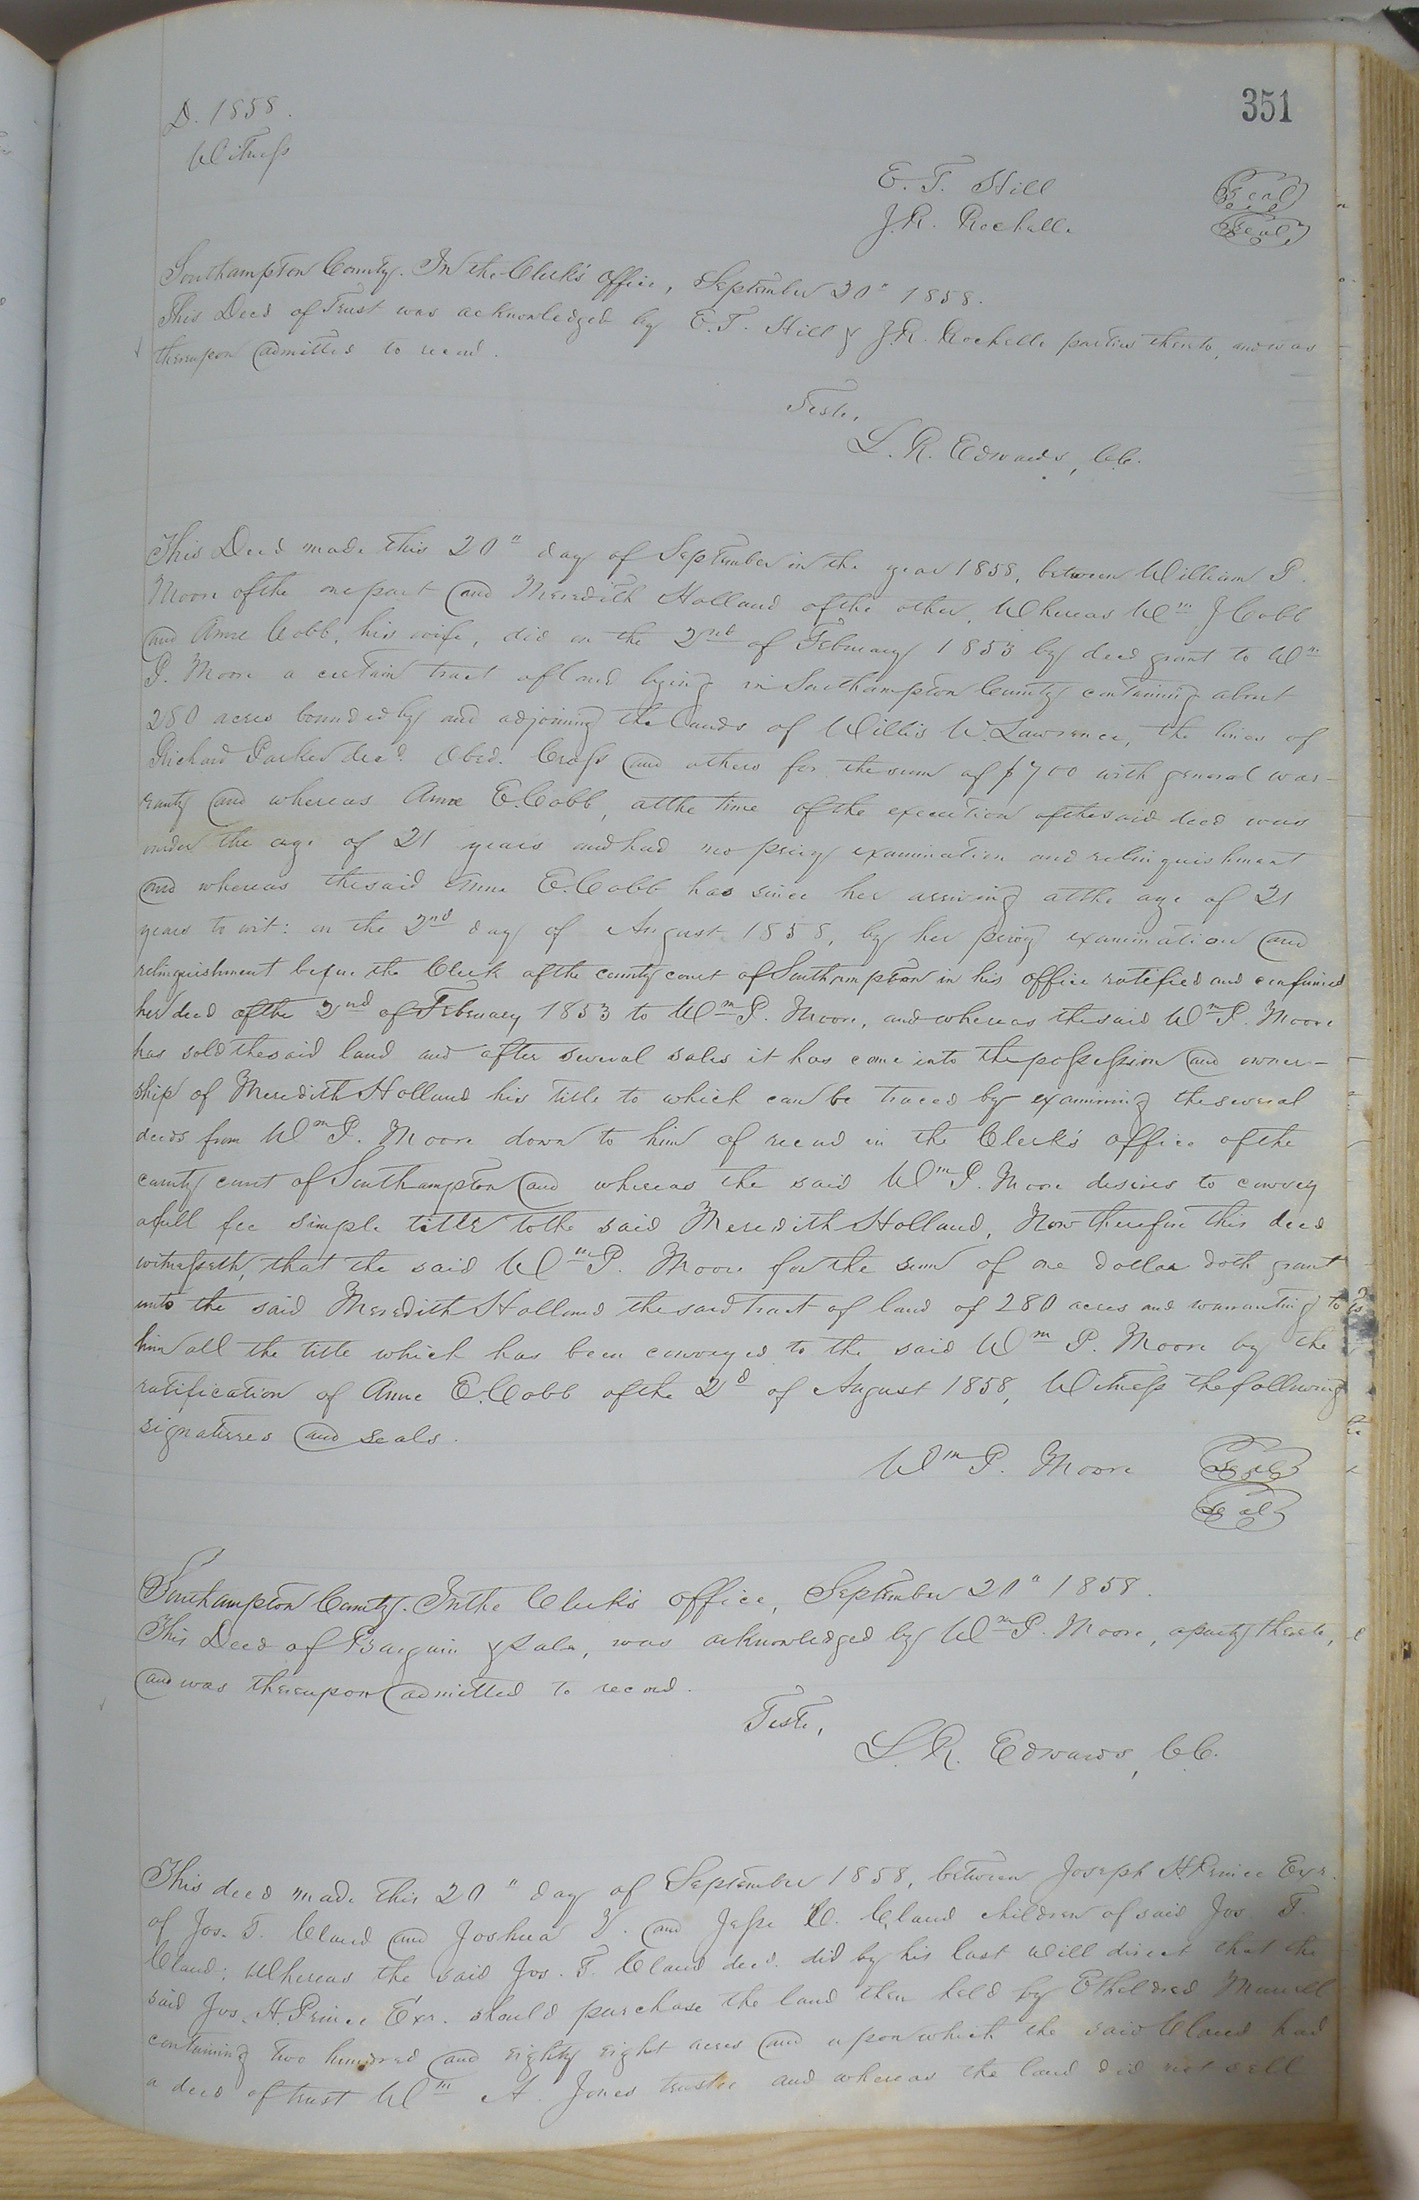 351
D. 1858.
Witness
E. T. Hill Seal
J. R. Rochelle Seal
Southampton County. In the Clerk's office, September 20" 1858.
This Deed of Trust was acknowledged by E. T. Hill & J. R. Rochelle parties thereto, and was
thereupon admitted to record.
Teste,
L. R. Edwards, C.C.
This Deed made this 20" day of September in the year 1858, between William P.
Moore of the one part and Meredith Holland of the other, Whereas Wm J Cobb
and Anne Cobb, his wife, did on the 2nd of February 1853 by deed grant to Wm
P. Moore a certain tract of land lying in Southampton County containing about
280 acres bounded by and adjoining the lands of Willis W. Lawrence, the lines of
Richard Parker decd. Obed. Cross and others for the sum of $700 with general war-
ranty and whereas Anne E. Cobb, at the time of the execution of the said deed was
under the age of 21 years and had no privy examination and relinquishment
and whereas the said Anne E. Cobb has since her arriving at the age of 21
years to wit: on the 2nd day of August 1858, by her privy examination and
relinquishment before the Clerk of the county court of Southampton in his office ratified and confirmed
her deed of the 2nd of February 1853 to Wm P. Moore, and whereas the said Wm P. Moore
has sold the said land and after several sales it has come into the possession and owner-
ship of Meredith Holland his title to which can be traced by examining the several
deeds from Wm P. Moore down to him of record in the Clerk's office of the
county court of Southampton and whereas the said Wm P. Moore desires to convey
a full fee simple title to the said Meredith Holland, Now therefore this deed
witnesseth, that the said Wm P. Moore for the sum of one dollar doth grant
unto the said Meredith Holland the said tract of land of 280 acres and warranting to
him all the title which has been conveyed to the said Wm P. Moore by the
ratification of Anne E. Cobb of the 2d of August 1858, Witness the following
signatures and seals.
Wm P. Moore Seal
Seal
Southampton County. In the Clerk's office, September 20" 1858.
This Deed of Bargain & Sale, was acknowledged by Wm P. Moore, a party thereto,
and was thereupon admitted to record.
Teste,
L. R. Edwards, C.C.
This deed made this 20" day of September 1858, between Joseph H Prince Exr.
of Jos. T. Claud and Joshua and Jesse C. Claud children of said Jos T.
Claud; Whereas the said Jos. T. Claud decd. did by his last will direct that the
said Jos. H. Prince Exr. should purchase the land then held by Etheldred Murrell
containing two hundred and eighty eight acres and upon which the said Claud had
a deed of trust Wm A. Jones trustee and whereas the land did not sell